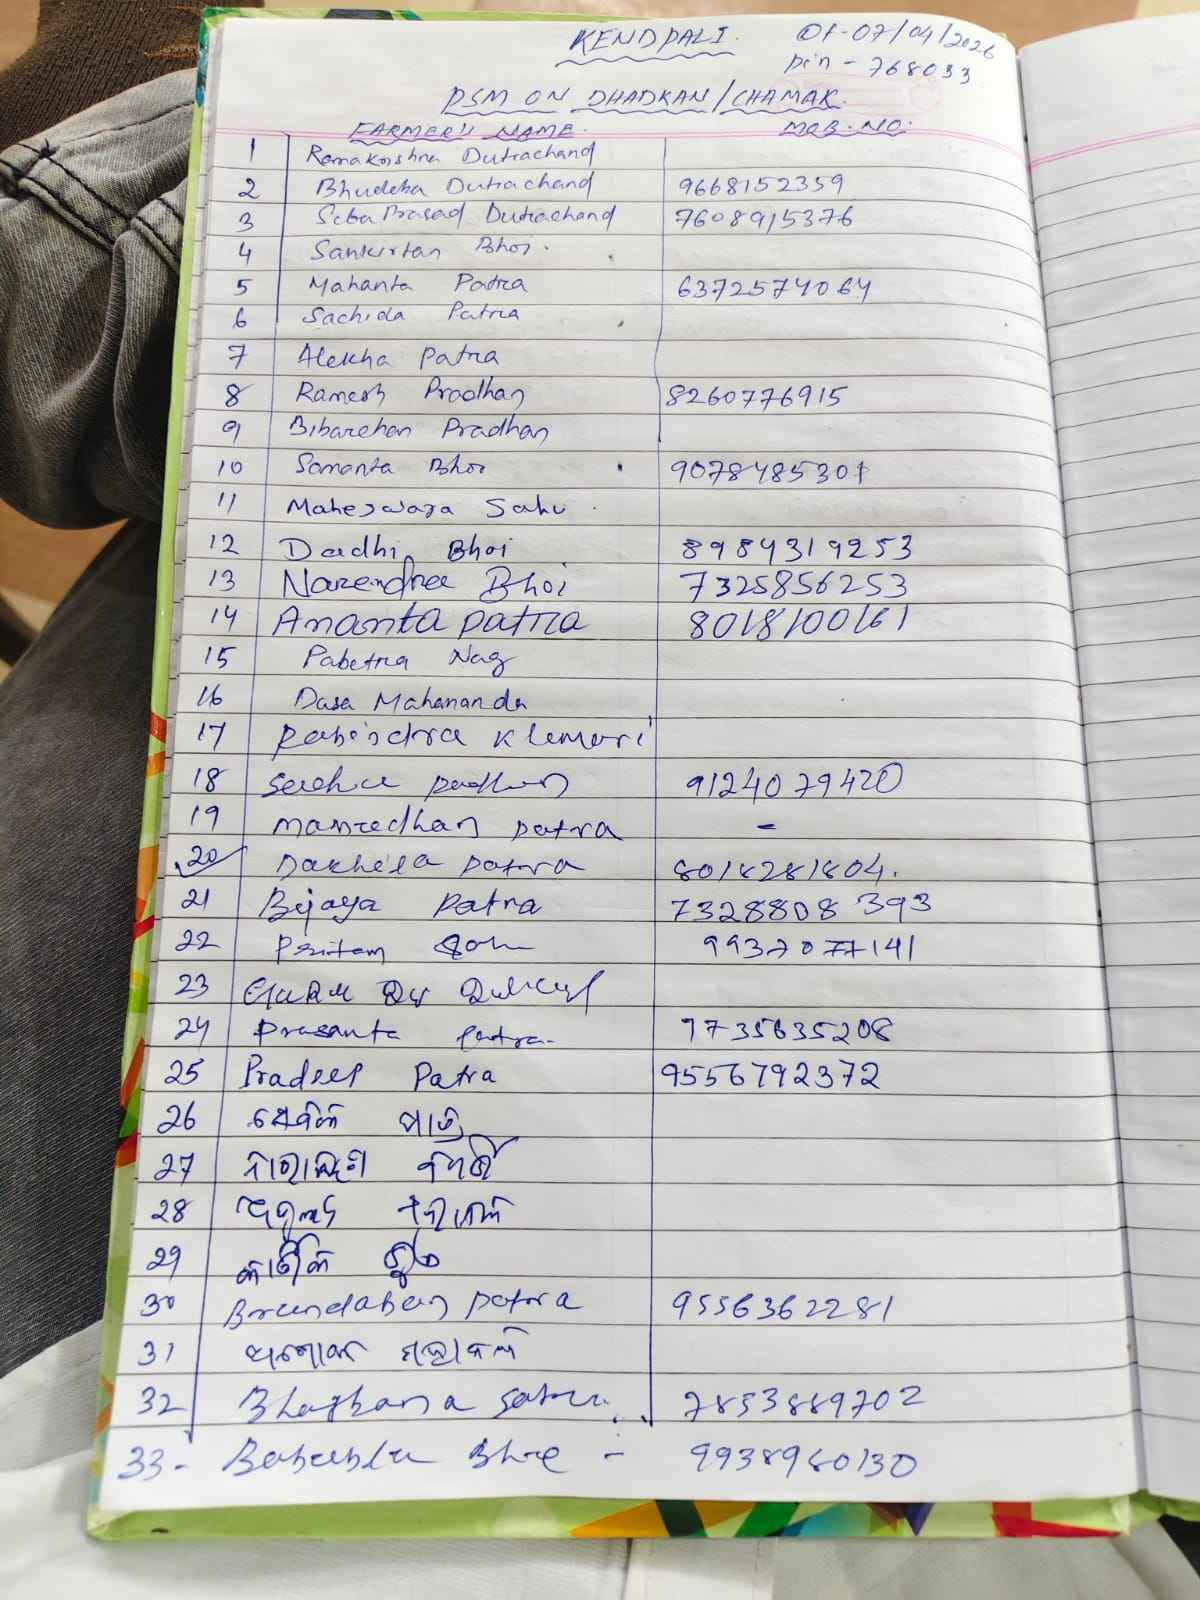 KENDPALI. Dt-07/04/2026
pin - 768033
PSM ON DHADKAN/CHAMAK.
FARMER'S NAME. MOB. NO.
1 Ramakrishna Dutrachand
2 Bhudeba Dutrachand 9668152359
3 Seba Prasad Dutrachand 7608915376
4 Sankirtan Bhoi.
5 Mahanta Patra 6372574064
6 Sachida Patra
7 Alekha Patra
8 Ramesh Pradhan 8260776915
9 Bibarehan Pradhan
10 Samanta Bhoi 9078485301
11 Maheswara Sahu.
12 Dadhi Bhoi 8984319253
13 Narendra Bhoi 7325856253
14 Ananta patra 8018100161
15 Pabetra Nag
16 Dasa Mahananda
17 Rabindra
18 padhan 9124079420
19 patra -
20 patra 8018281804.
21 Bijaya Patra 7328808393
22 Pritam 9937077141
23
24 Prasanta Patra 9735635208
25 Pradeep Patra 9556792372
26 ପାତ୍ର
27 ନାରାୟଣ
28
29 କାର୍ତ୍ତିକ
30 Brundaban patra 9556362281
31 ଅଶୋକ
32 7853889702
33 - - 9938960130